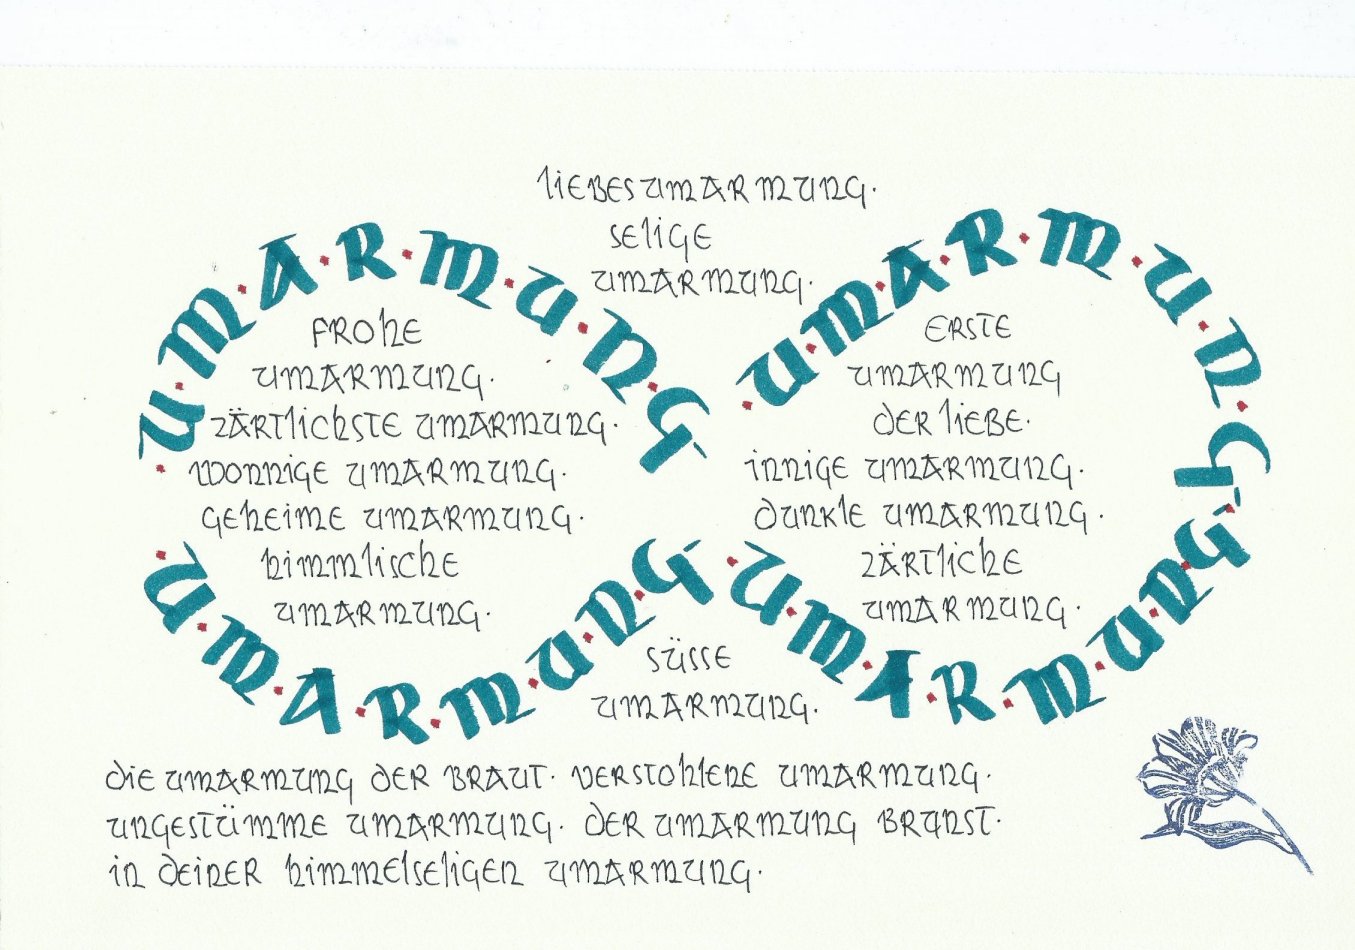 LIEBESUMARMUNG.
SELIGE
UMARMUNG.
U·M·A·R·M·U·N·G
·U·M·A·R·M·U·N·G·
FROHE
UMARMUNG.
ZÄRTLICHSTE UMARMUNG.
WONNIGE UMARMUNG.
GEHEIME UMARMUNG.
HIMMLISCHE
UMARMUNG.
ERSTE
UMARMUNG
DER LIEBE.
INNIGE UMARMUNG.
DUNKLE UMARMUNG.
ZÄRTLICHE
UMARMUNG.
·U·M·A·R·M·U·N·G
·U·M·A·R·M·U·N·G
SÜSSE
UMARMUNG.
DIE UMARMUNG DER BRAUT. VERSTOHLENE UMARMUNG.
UNGESTÜMME UMARMUNG. DER UMARMUNG BRUNST.
IN DEINER HIMMELSELIGEN UMARMUNG.